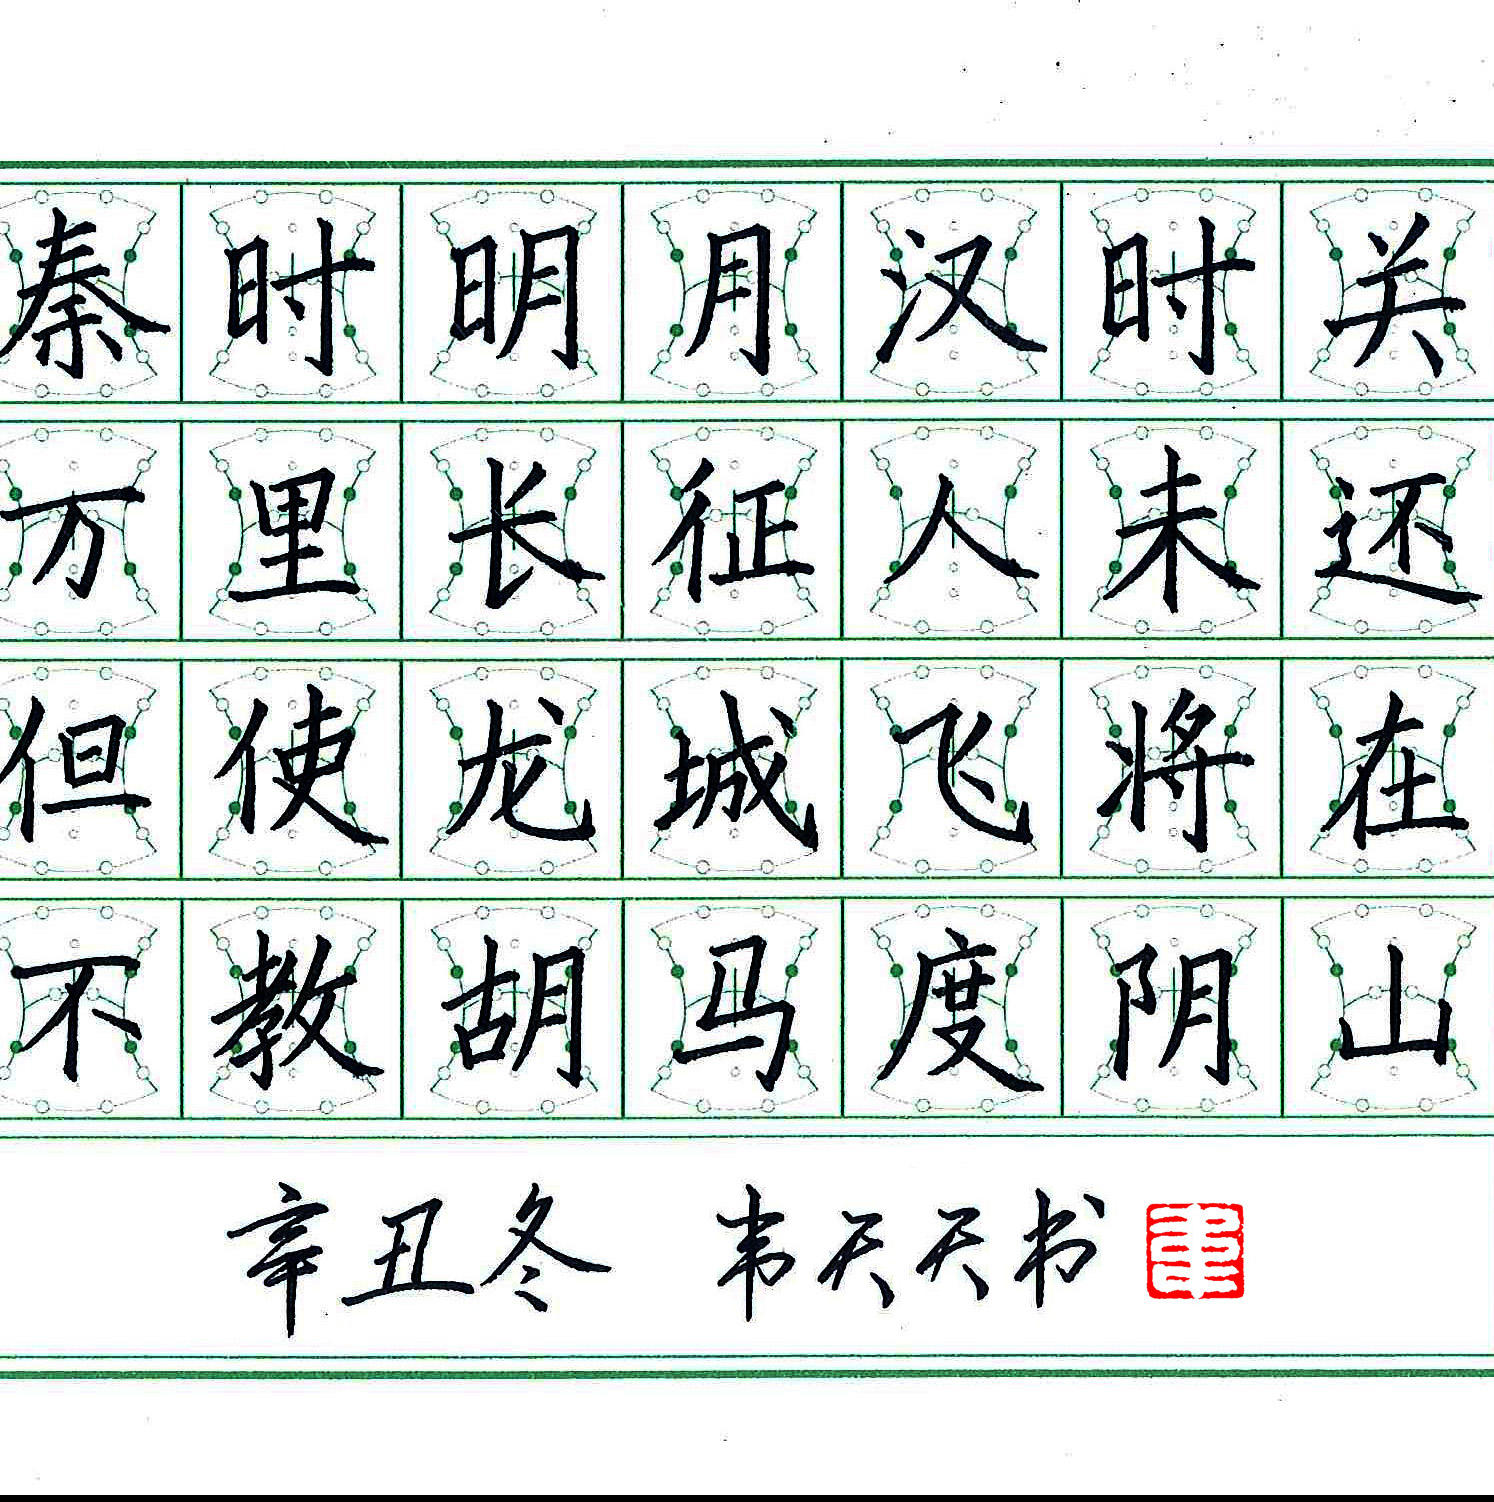 秦时明月汉时关
万里长征人未还
但使龙城飞将在
不教胡马度阴山
辛丑冬 韦天天书